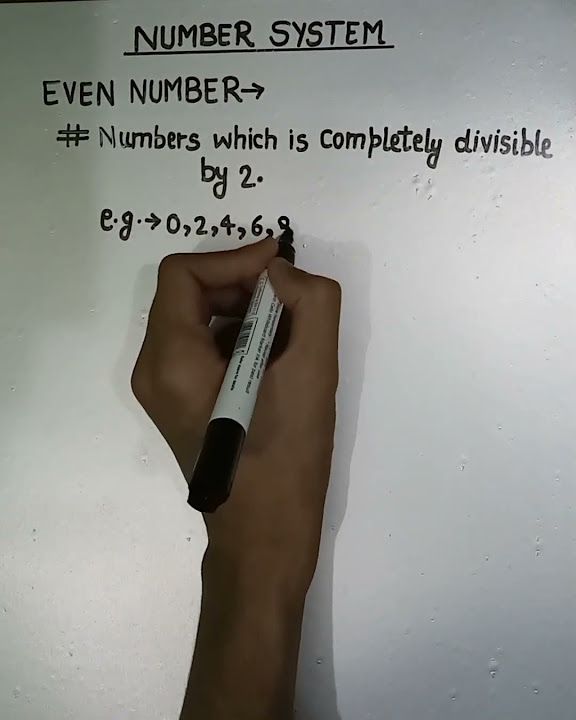 NUMBER SYSTEM
EVEN NUMBER→
# Numbers which is completely divisible
by 2.
e.g.→ 0,2,4,6,8